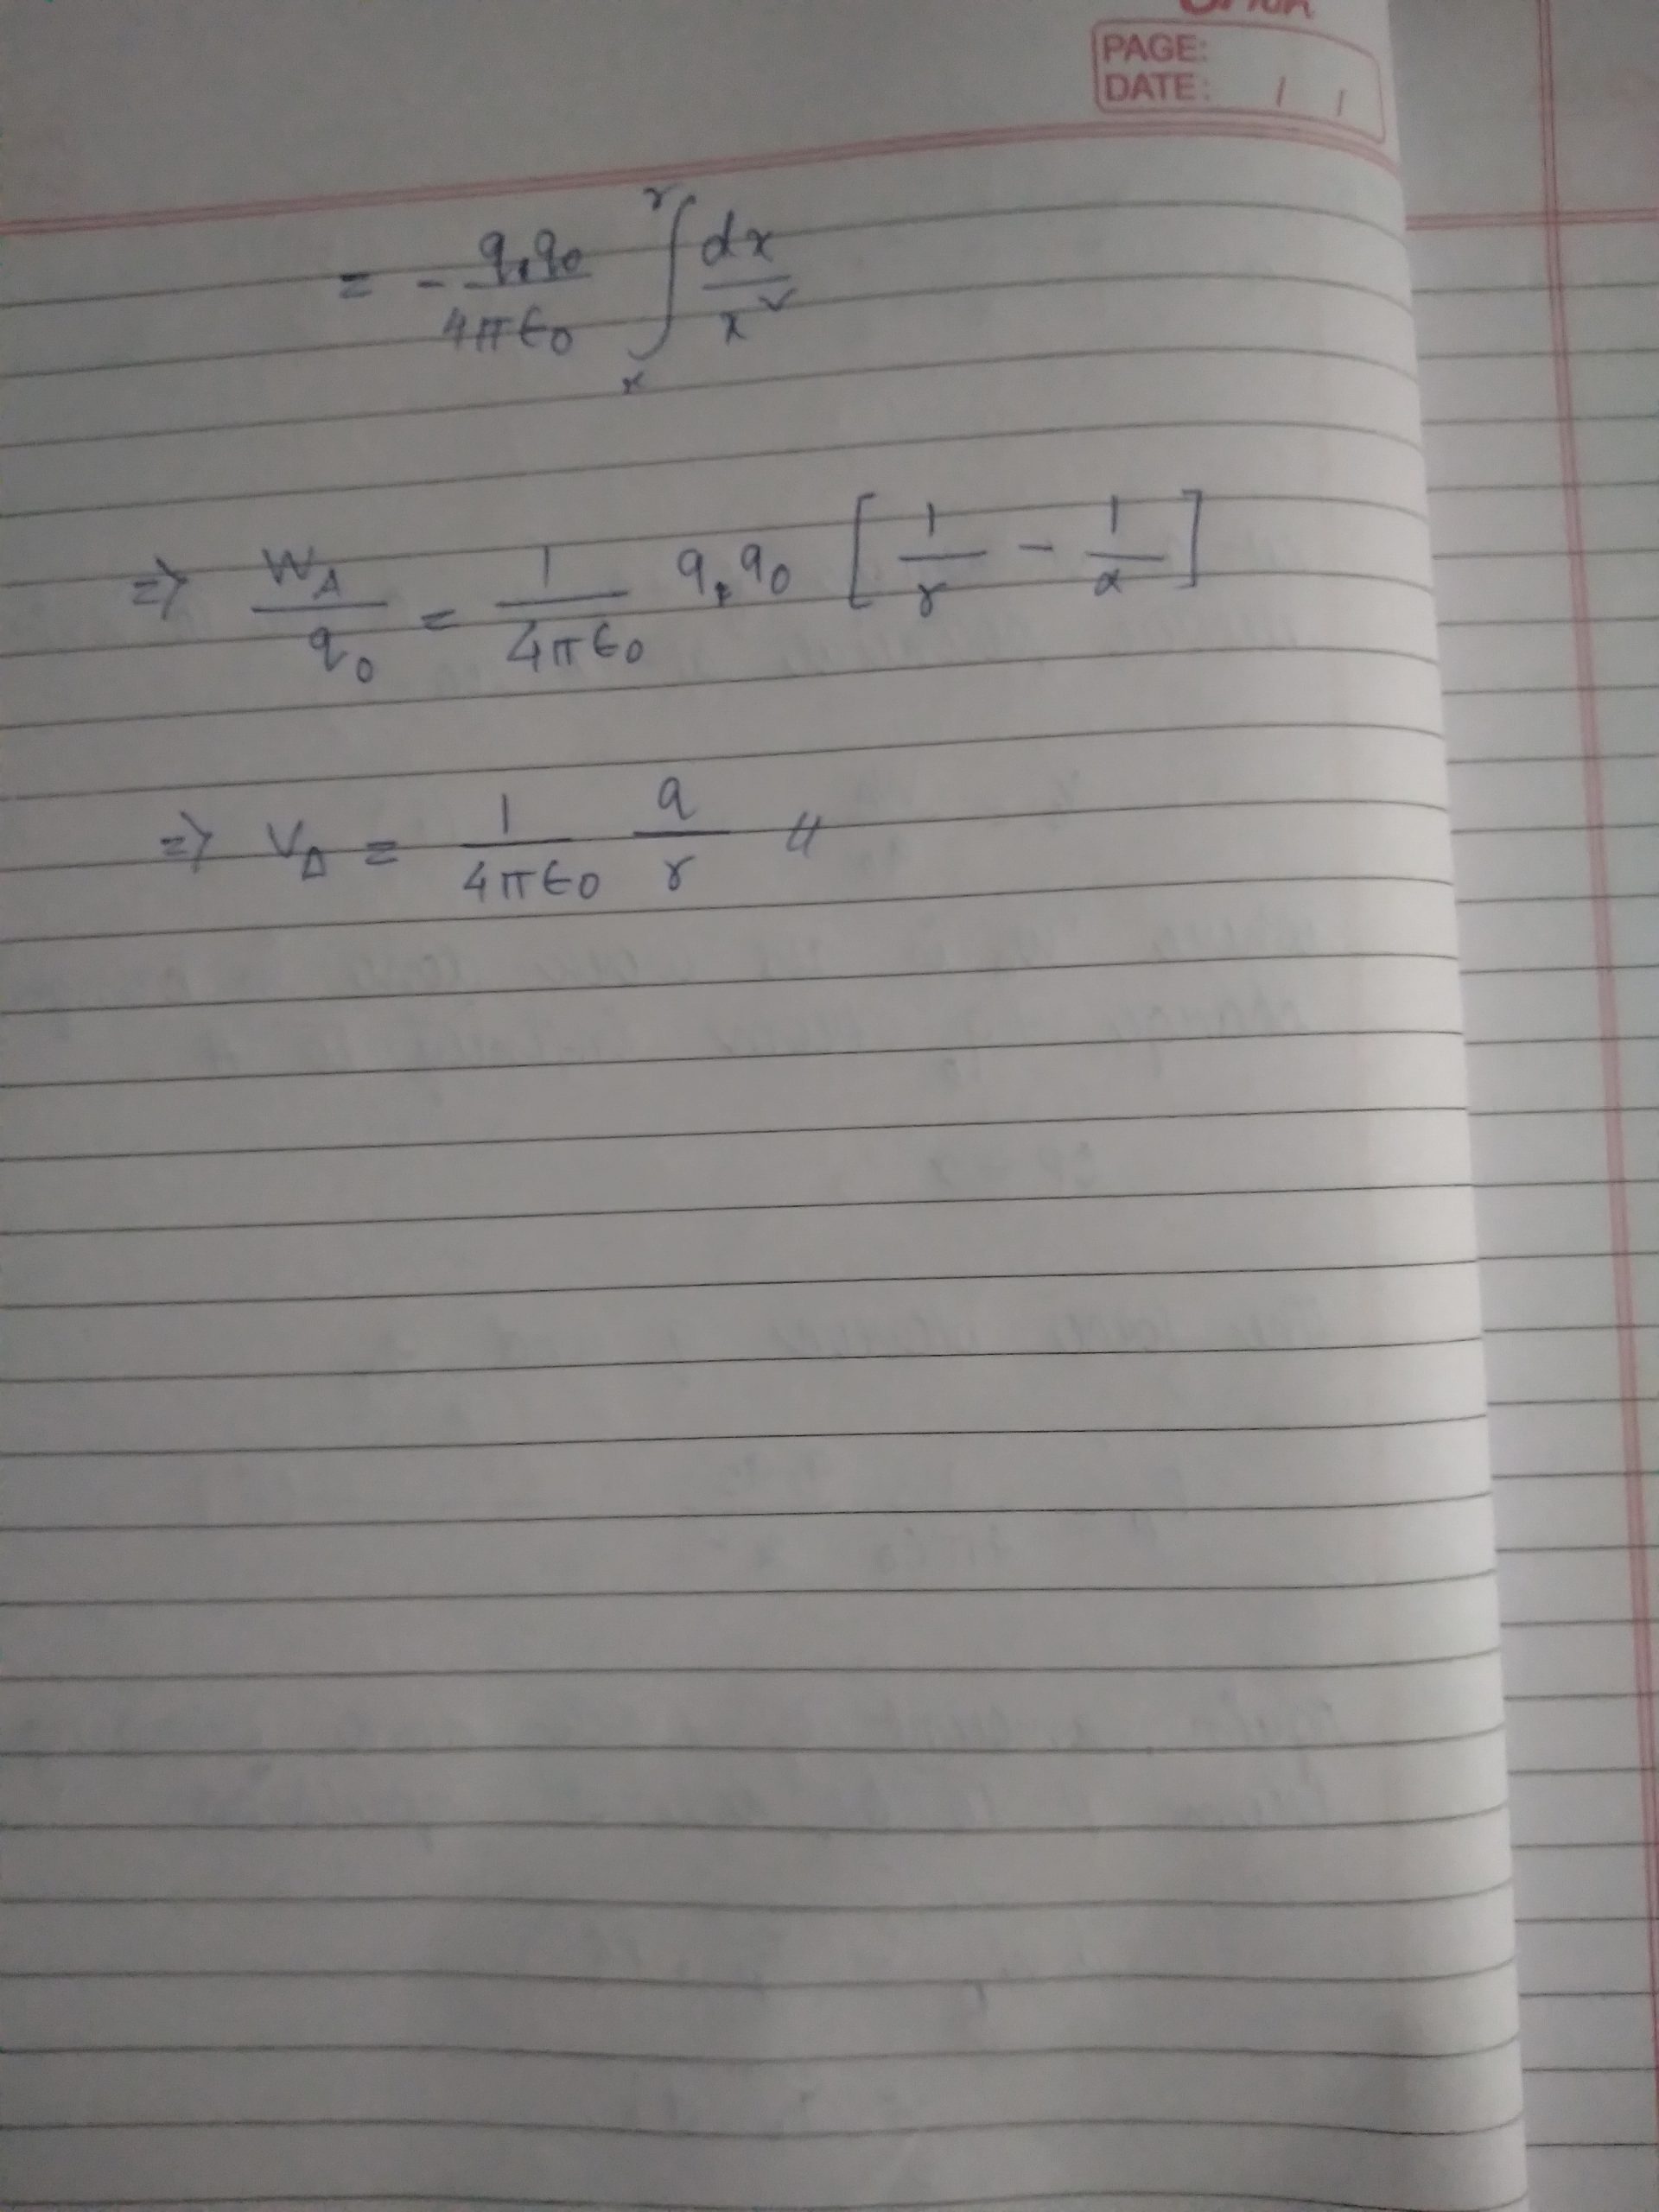 PAGE:
DATE: / /
= - q,q0/4πε0 ∫_x^r dx/x²
=> WA/q0 = 1/4πε0 q,q0 [1/r - 1/α]
=> VA = 1/4πε0 q/r //